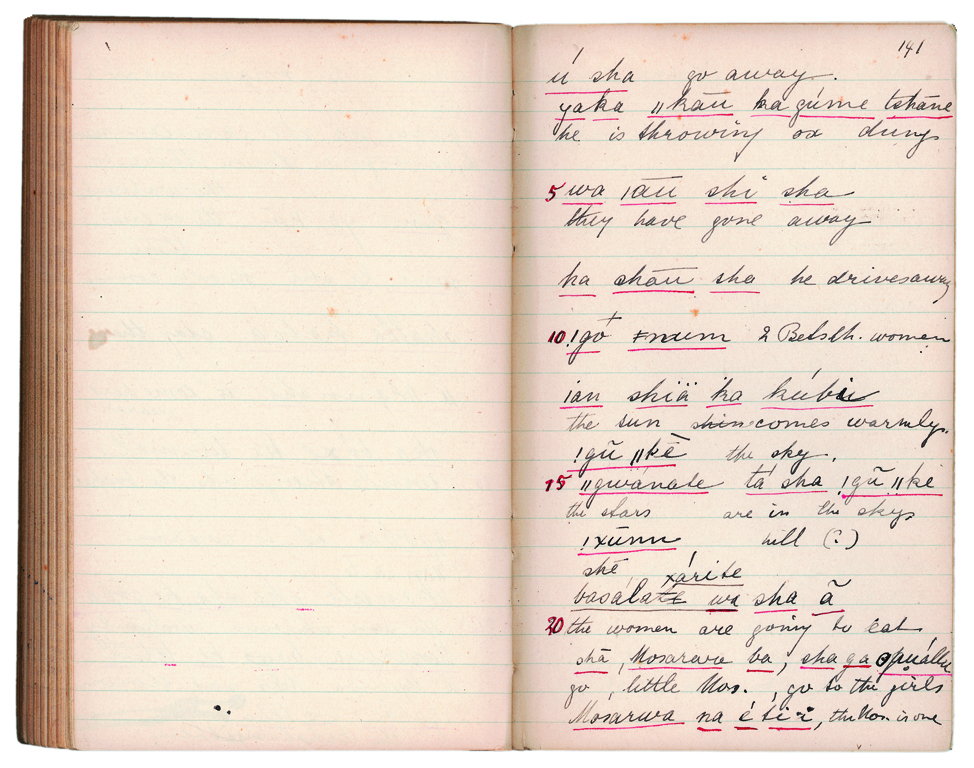 141
ú sha go away.
yaka ǁkāū ka gúme tshāne
he is throwing ox dung
5 wa ǀāū shi sha
they have gone away
ka shāū sha he drives away
10 !gó ǂnum 2 Betslh. women
ian shïä ka kúbi
the sun shin comes warmly.
!gū ǁkē the sky.
15 ǁgwánate tá sha !gũ ǁkē
the stars are in the sky
!xūnn hill (?)
shē xárite
basálate wa sha ã
20 the women are going to eat
shā, Mosarwa ba, sha ga
go, little Mos., go to the girls
Mosarwa na é ti i, the Mos. is one